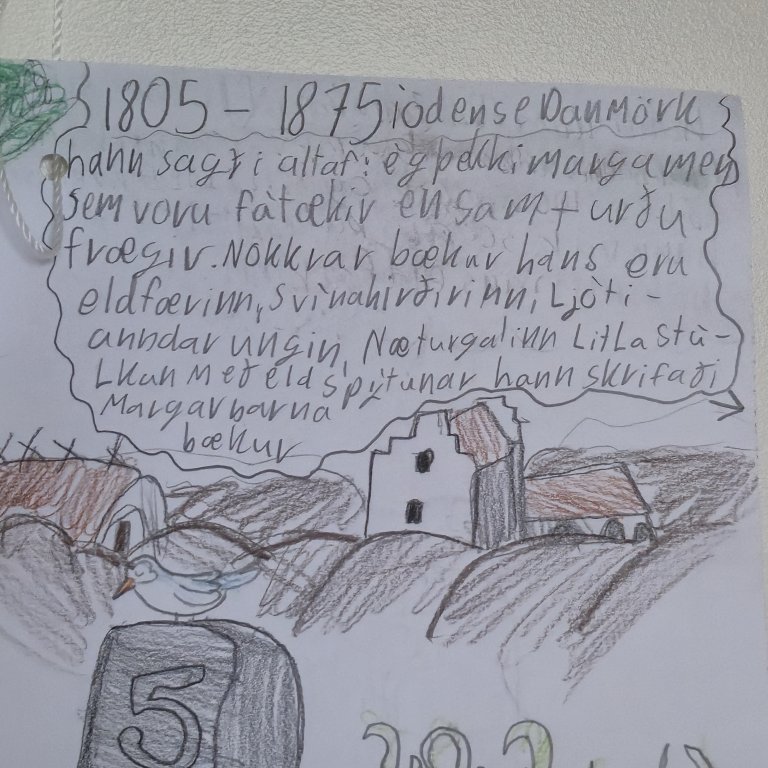 1805 - 1875 iódense Danmörk
hann sagði altaf: ég þekki marga men
sem voru fàtækir en samt urðu
frægir. Nokkrar bækur hans eru
eldfærinn, svìnahirðirinn, Ljòti-
anndar ungin, Næturgalinn Litla stù-
Lkan með eldspýtunar hann skrifaði
Margar barna
bækur
5